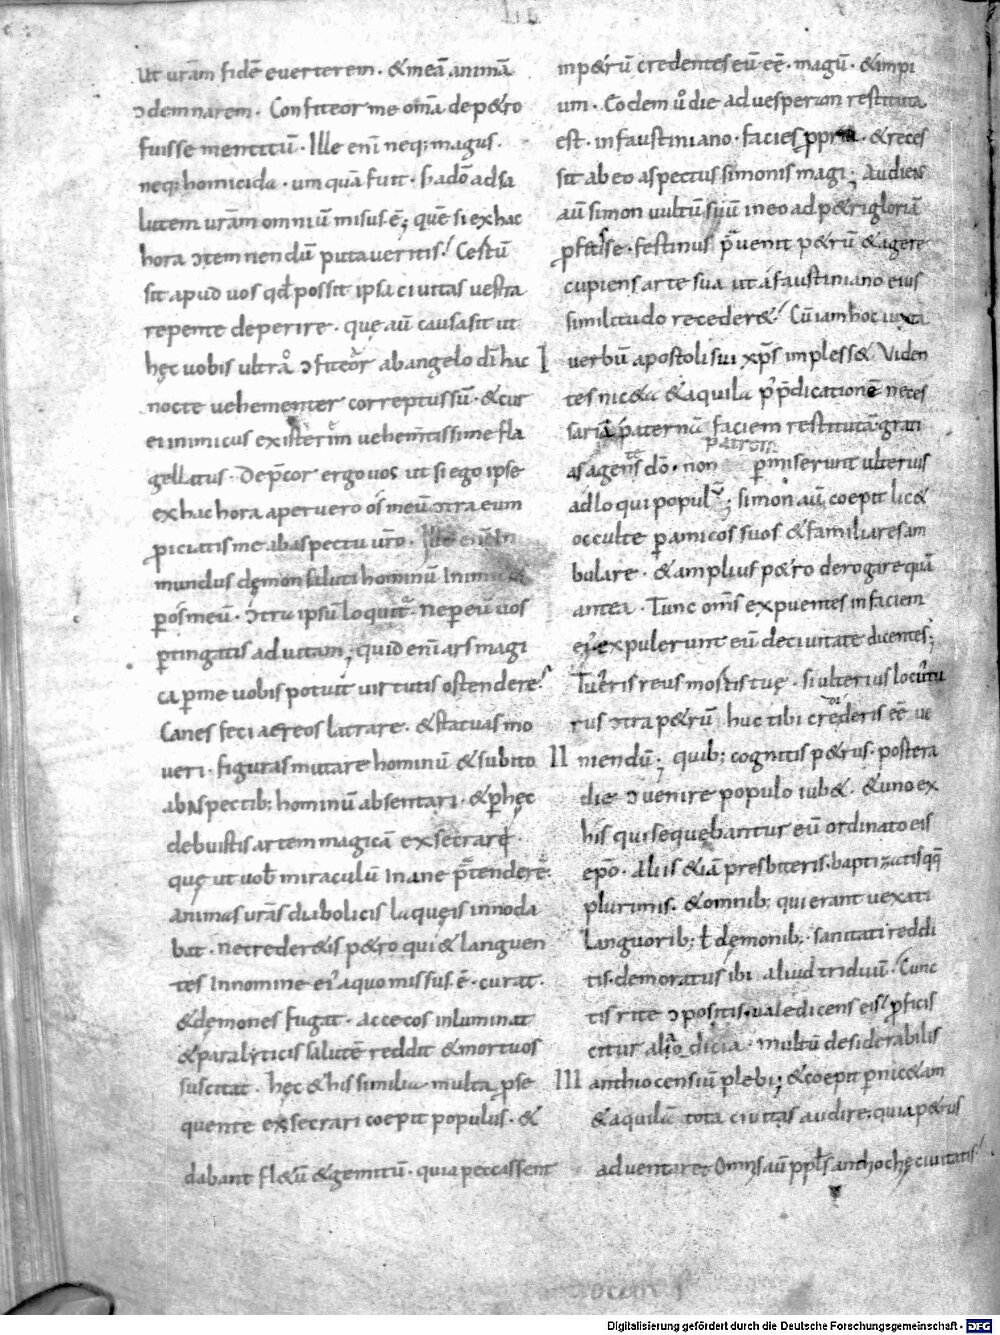 ut urãm fidẽ euerterem · & meã animã
ɔdemnarem · Confiteor me om̃a de p&ro
fuisse mentitũ · Ille eni neq; magus ·
neq; homicida · umquã fuit · s; adõ ad sa
lutem urãm omniũ misus ẽ; quẽ si ex hac
hora ɔtemnendũ putaueritis! Certũ
sit apud uos qđ possit ipsa ciuitas uestra
repente deperire · quę aũ causa sit ut
hęc uobis ultro ɔfiteor ab angelo dĩ hac
nocte uehementer correptus sũ · & cur
ei inimicus existerem uehem̃tissime fla
gellatus · Dep̃cor ergo uos ut si ego ipse
ex hac hora aperuero ós meũ ɔtra eum
ꝓiciatis me ab aspectu ur̃o · Ille eni in
mundus dęmon saluti hominũ inimicus
ꝑ ós meũ · ɔtra ipsũ loquit̃ · ne ꝑ eũ uos
ꝑtingatis ad uitam; quid eni ars magi
ca ꝑ me uobis potuit uirtutis ostendere?
Canes feci aereos latrare · & statuas mo
ueri · figuras mutare hominũ & subito
ab aspectib; hominũ absentari · & ꝑ hęc
debuistis artem magicã exsecrari
quę ut uob̃ miraculũ inane p̃tenderẽ
animas urãs diabolicis laqueis innoda
bat · ne creder&is p&ro qui & languen
tes in nomine ei' a quo missus ẽ · curat ·
& dęmones fugat · accecos inluminat
& paralyticis salutẽ reddit & mortuos
suscitat · hęc & his similia multa ꝓse
quente exsecrari coepit populus · &
dabant fl&ũ & gemitũ · quia peccassent
in p&rũ credentes eũ eẽ · magũ · & impi
um · Eodem u̇ die ad uesperam restituta
est · in faustiniano · facies ꝓpria · & reces
sit ab eo aspectus simonis magi; Audiens
aũ simon uultũ suũ in eo ad p&ri gloriã
ꝓfecisse · festinus p̃uenit p&rũ & agere
cupiens arte sua ut á faustiniano eius
similitudo receder&! Cũ iam hoc iuxta
I uerbũ apostoli sui xp̃s impless& Viden
tes nic&a & aquila p' p̃dicationẽ neces
sariã paternã faciem restitutã grati
as agentes dõ · non patrem ꝑmiserunt ulterius
adloqui popul'; simon aũ coepit lic&
occulte ꝑ amicos suos & familiares am
bulare · & amplius p&ro derogare quã
antea · Tunc om̃s expuentes in faciem
ei' expulerunt eũ de ciuitate dicentes;
Tu eris reus mortis tuę · si ulterius locutu
rus ɔtra p&rũ huc tibi credideris eẽ ue
II niendũ; quib; cognitis p&rus · postera
die ɔuenire populo iub& · & uno ex
his qui sequebantur eũ ordinato eis
ep̃o · Aliis &iã presbiteris · baptizatisqq̃
plurimis · & omnib; qui erant uexati
Languorib; ł dęmonib; · sanitati reddi
tis · demoratus ibi aliud triduũ · Cunc
tis rite ɔpositis · ualedicens eis ꝓficis
citur a laodicia · multũ desiderabilis
III anthiocensiũ plebi; & coepit ꝑ nic&am
& aquilã tota ciuitas audire; quia p&rus
aduentar& Om̃is aũ ppl's anthochę ciuitatis!
Digitalisierung gefördert durch die Deutsche Forschungsgemeinschaft - DFG